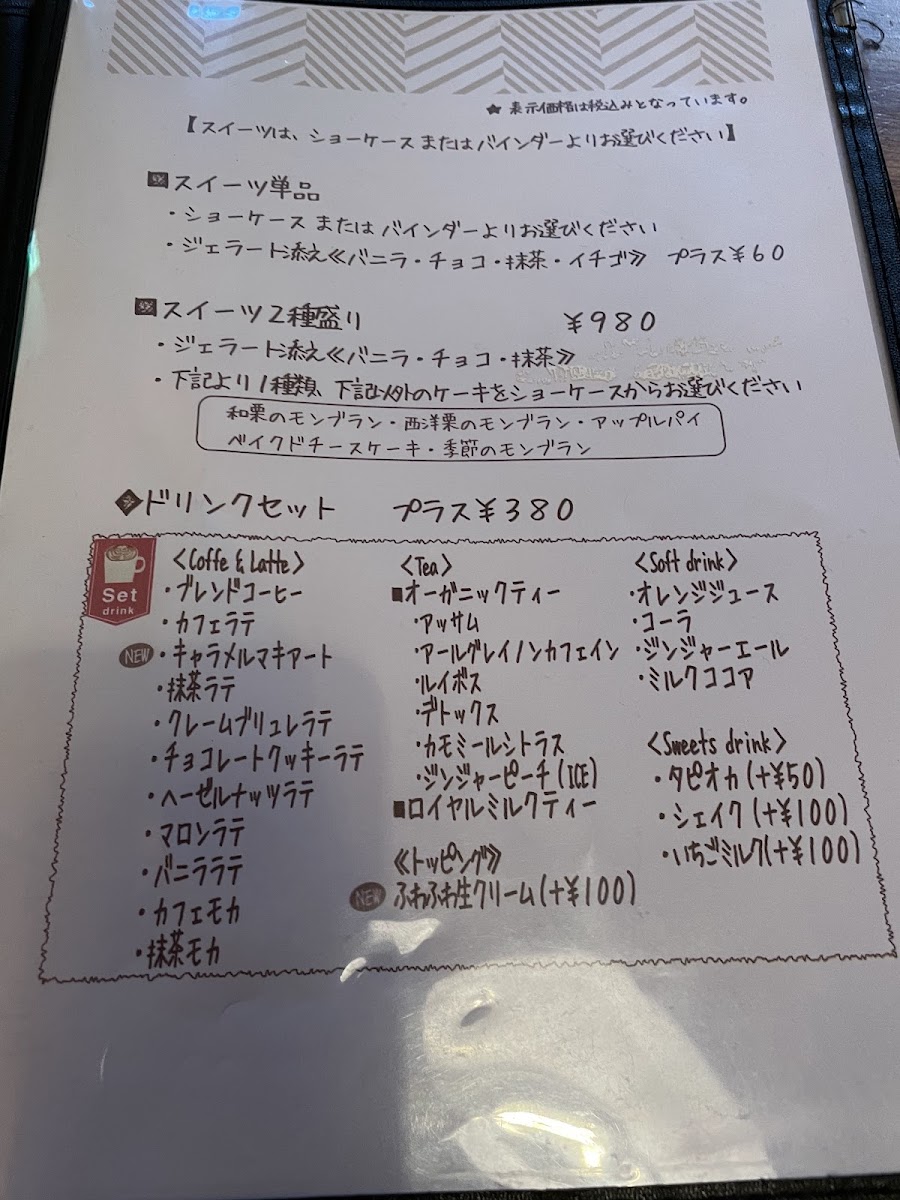 ★ 表示価格は税込みとなっています。
【スイーツは、ショーケース または バインダーよりお選びください】
スイーツ単品
・ショーケース または バインダーよりお選びください
・ジェラート添え≪バニラ・チョコ・抹茶・イチゴ≫ プラス¥60
スイーツ2種盛り ¥980
・ジェラート添え≪バニラ・チョコ・抹茶≫
・下記より1種類、下記以外のケーキをショーケースからお選びください
和栗のモンブラン・西洋栗のモンブラン・アップルパイ
ベイクドチースケーキ・季節のモンブラン
◆ドリンクセット プラス¥380
Set
drink
<Coffe & Latte>
・ブレンドコーヒー
・カフェラテ
NEW ・キャラメルマキアート
・抹茶ラテ
・クレームブリュレラテ
・チョコレートクッキーラテ
・ヘーゼルナッツラテ
・マロンラテ
・バニララテ
・カフェモカ
・抹茶モカ
<Tea>
■オーガニックティー
・アッサム
・アールグレイノンカフェイン
・ルイボス
・デトックス
・カモミールシトラス
・ジンジャーピーチ(ICE)
■ロイヤルミルクティー
≪トッピング≫
NEW ふわふわ生クリーム(+¥100)
<Soft drink>
・オレンジジュース
・コーラ
・ジンジャーエール
・ミルクココア
<Sweets drink>
・タピオカ(+¥50)
・シェイク(+¥100)
・いちごミルク(+¥100)